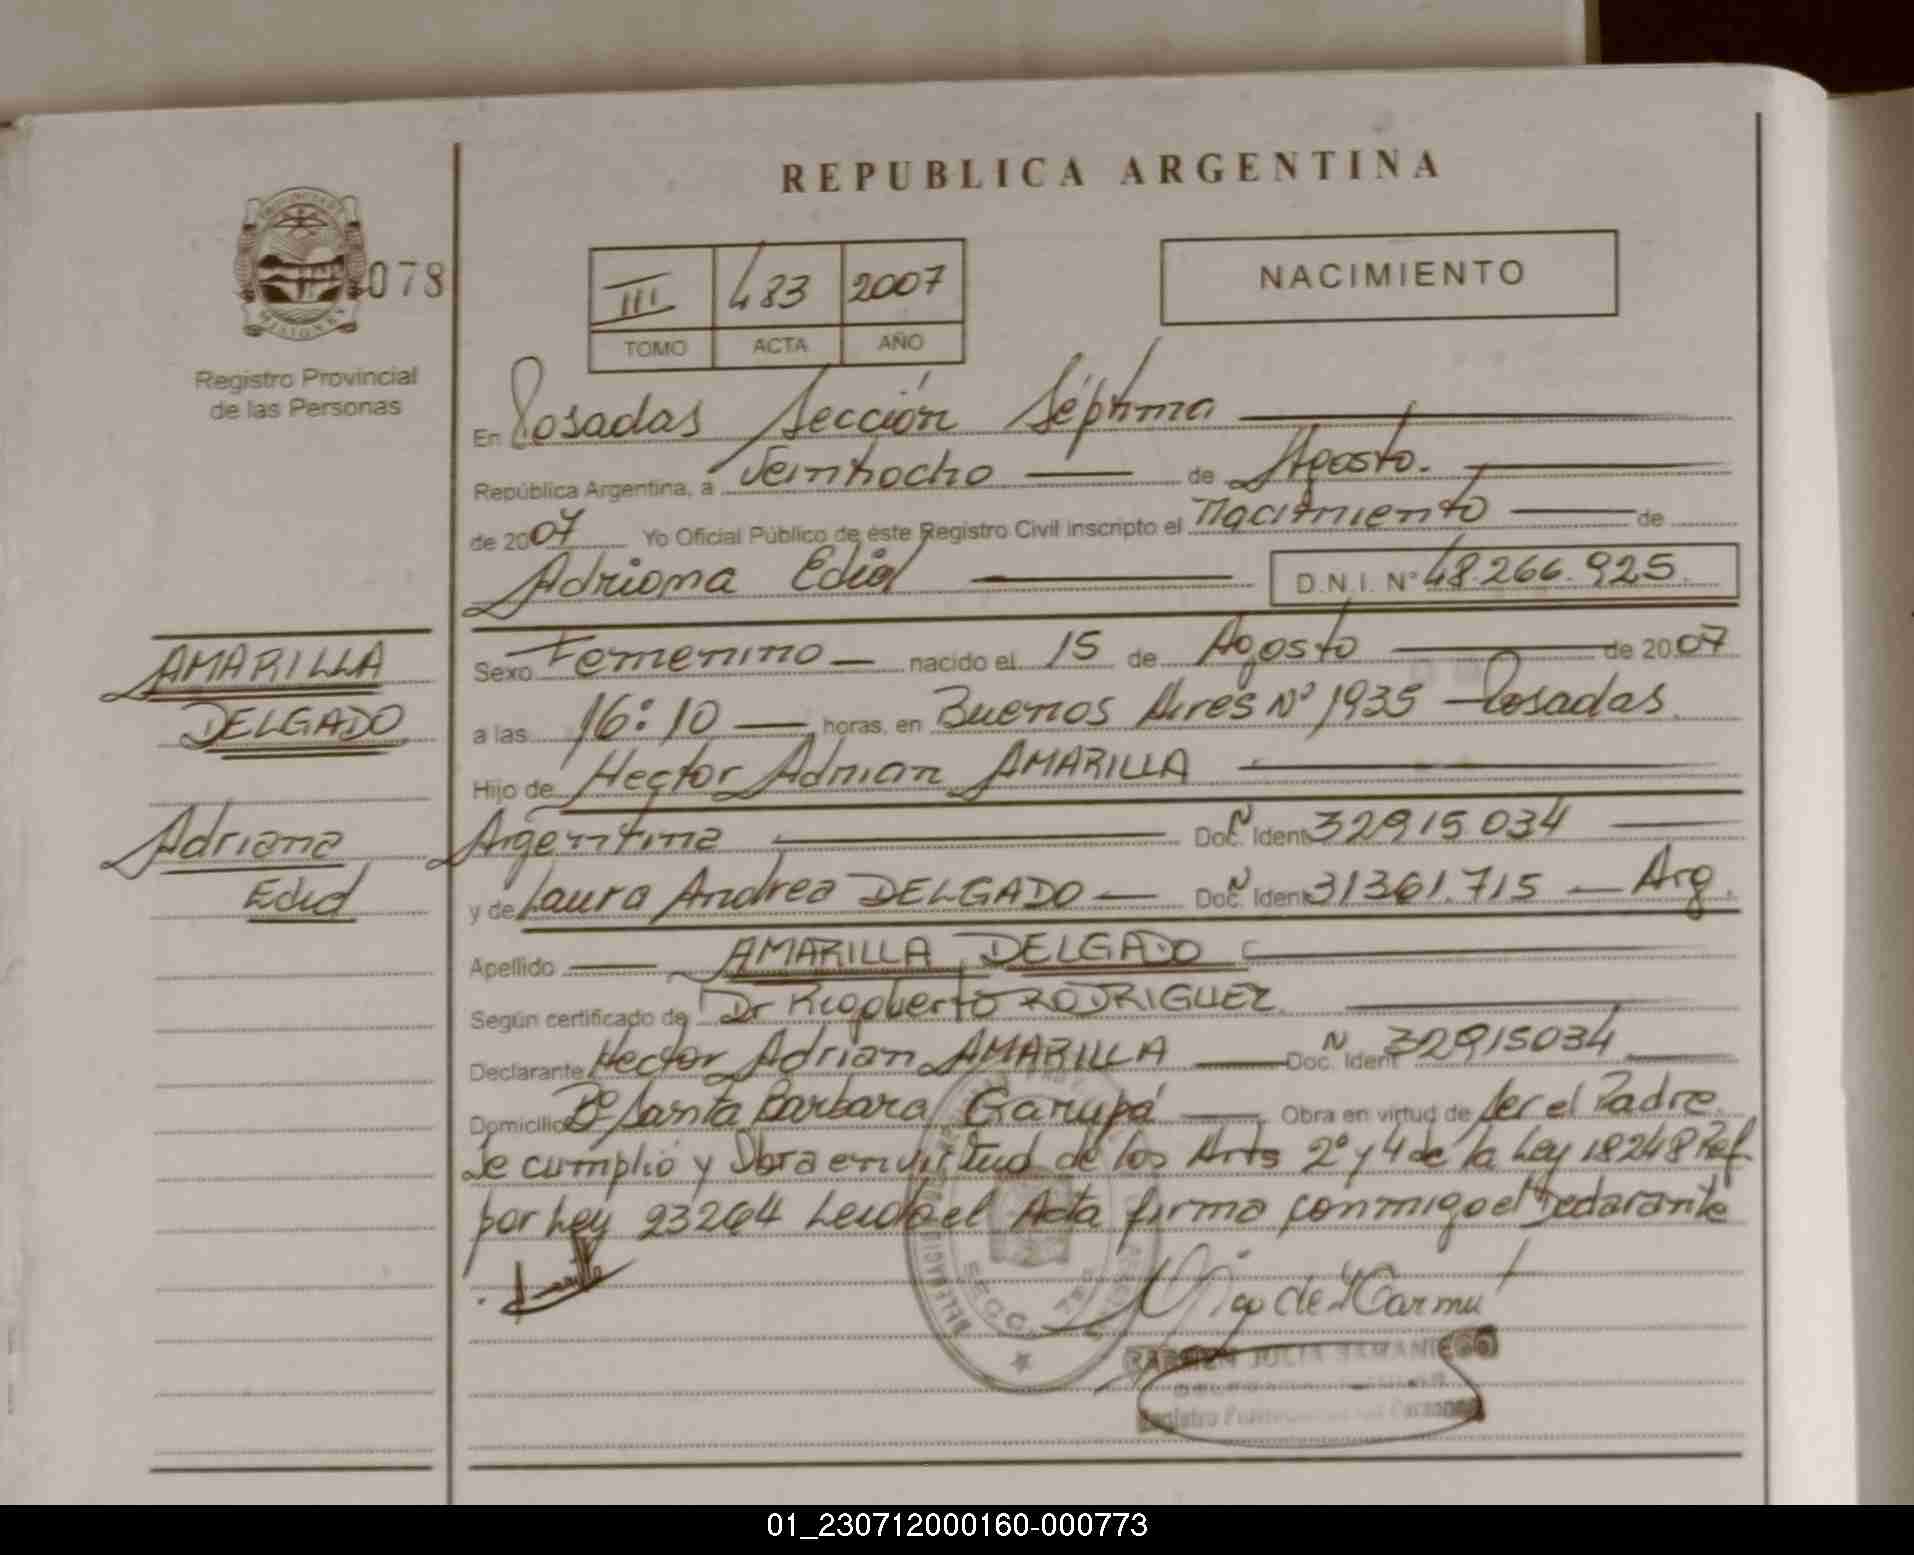 REPUBLICA ARGENTINA
078
III 483 2007
TOMO ACTA AÑO
NACIMIENTO
MISIONES
Registro Provincial
de las Personas
En Posadas Sección Séptima
República Argentina, a Veintiocho de Agosto.
de 2007 Yo Oficial Público de éste Registro Civil inscripto el Nacimiento de
Adriana Edid D.N.I. Nº 48.266.925
AMARILLA
DELGADO
Adriana
Edid
Sexo Femenino nacido el 15 de Agosto de 2007
a las 16:10 horas, en Buenos Aires Nº 1935 - Posadas
Hijo de Hector Adrian AMARILLA
Argentina Doc. Ident. 32915034
y de Laura Andrea DELGADO Doc. Ident. 31361.715 Arg.
Apellido AMARILLA DELGADO
Según certificado de Dr Rigoberto RODRIGUEZ
Declarante Hector Adrian AMARILLA Doc. Ident. 32915034
Domicilio Bº Santa Barbara Garupá Obra en virtud de Ser el Padre
Se cumplio y Obra en virtud de los Arts 2º y 4 de la Ley 18248 Ref.
por Ley 23264 Leida el Acta firma conmigo el Declarante
SECC. 7ª
CARMEN JULIA SAMANIEGO
01_230712000160-000773